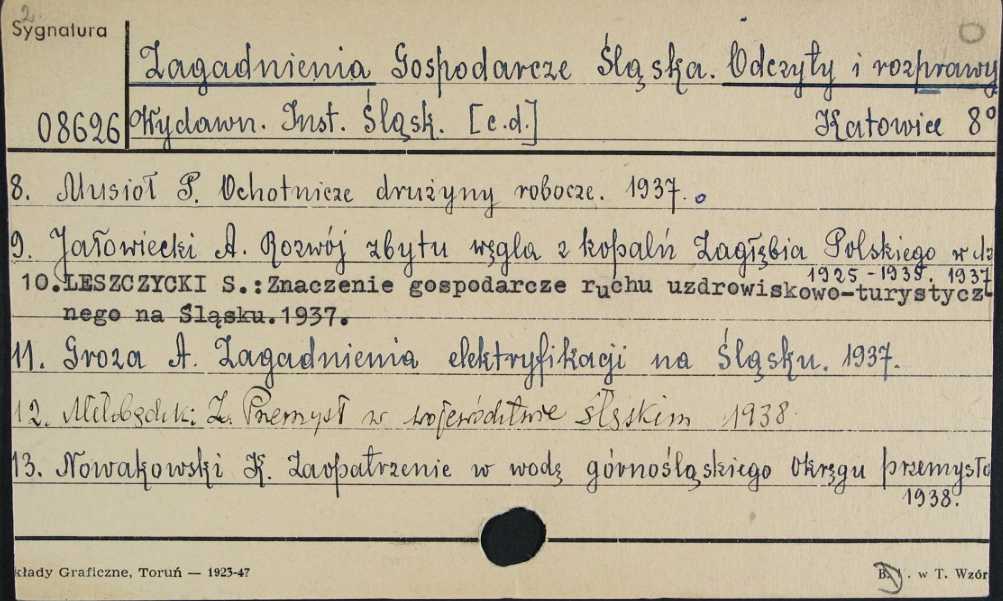 2
Sygnatura
Zagadnienia Gospodarcze Śląska. Odczyty i rozprawy
08626 Wydawn. Inst. Śląsk. [c.d.] Katowice 8°
8. Musioł P. Ochotnicze drużyny robocze. 1937.
9. Jałowiecki A. Rozwój zbytu węgla z kopalń Zagłębia Polskiego w
1925-1935. 1937
10. LESZCZYCKI S.:Znaczenie gospodarcze ruchu uzdrowiskowo-turystycz-
nego na Śląsku.1937.
11. Groza A. Zagadnienia elektryfikacji na Śląsku. 1937.
12. Z. Przemysł w województwie śląskim 1938
13. Nowakowski K. Zaopatrzenie w wodę górnośląskiego Okręgu przemysło
1938.
kłady Graficzne, Toruń — 1923-47
w T. Wzór